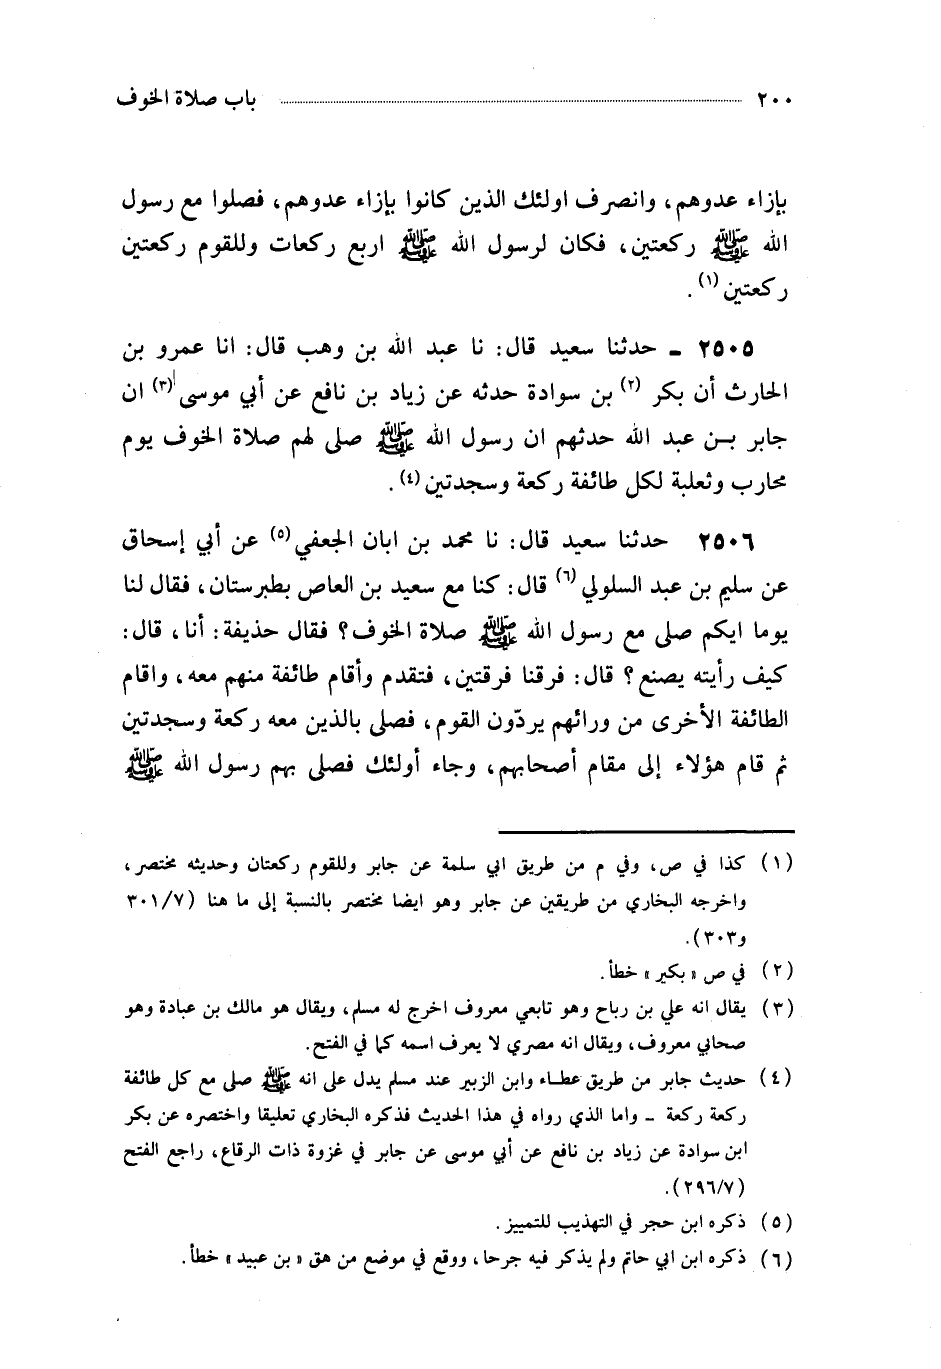 ٢٠٠ باب صلاة الخوف
بإزاء عدوهم، وانصرف اولئك الذين كانوا بإزاء عدوهم، فصلوا مع رسول
الله ﷺ ركعتين، فكان لرسول الله ﷺ اربع ركعات وللقوم ركعتين
ركعتين (١).
٢٥٠٥ ـ حدثنا سعيد قال: نا عبد الله بن وهب قال: انا عمرو بن
الحارث أن بكر (٢) بن سوادة حدثه عن زياد بن نافع عن أبي موسى (٣) ان
جابر بـن عبد الله حدثهم ان رسول الله ﷺ صلى لهم صلاة الخوف يوم
محارب وثعلبة لكل طائفة ركعة وسجدتين (٤).
٢٥٠٦ حدثنا سعيد قال: نا محمد بن ابان الجعفي (٥) عن أبي إسحاق
عن سليم بن عبد السلولي (٦) قال: كنا مع سعيد بن العاص بطبرستان، فقال لنا
يوما ايكم صلى مع رسول الله ﷺ صلاة الخوف؟ فقال حذيفة: أنا، قال:
كيف رأيته يصنع؟ قال: فرقنا فرقتين، فتقدم وأقام طائفة منهم معه، واقام
الطائفة الأخرى من ورائهم يردّون القوم، فصلى بالذين معه ركعة وسجدتين
ثم قام هؤلاء إلى مقام أصحابهم، وجاء أولئك فصلى بهم رسول الله ﷺ
(١) كذا في ص، وفي م من طريق ابي سلمة عن جابر وللقوم ركعتان وحديثه مختصر،
واخرجه البخاري من طريقين عن جابر وهو ايضا مختصر بالنسبة إلى ما هنا (٣٠١/٧
و٣٠٣).
(٢) في ص «بكير» خطأ.
(٣) يقال انه علي بن رباح وهو تابعي معروف اخرج له مسلم، ويقال هو مالك بن عبادة وهو
صحابي معروف، ويقال انه مصري لا يعرف اسمه كما في الفتح.
(٤) حديث جابر من طريق عطاء وابن الزبير عند مسلم يدل على انه ﷺ صلى مع كل طائفة
ركعة ركعة ـ واما الذي رواه في هذا الحديث فذكره البخاري تعليقا واختصره عن بكر
ابن سوادة عن زياد بن نافع عن أبي موسى عن جابر في غزوة ذات الرقاع، راجع الفتح
(٢٩٦/٧).
(٥) ذكره ابن حجر في التهذيب للتمييز.
(٦) ذكره ابن ابي حاتم ولم يذكر فيه جرحا، ووقع في موضع من هق «بن عبيد» خطأ.